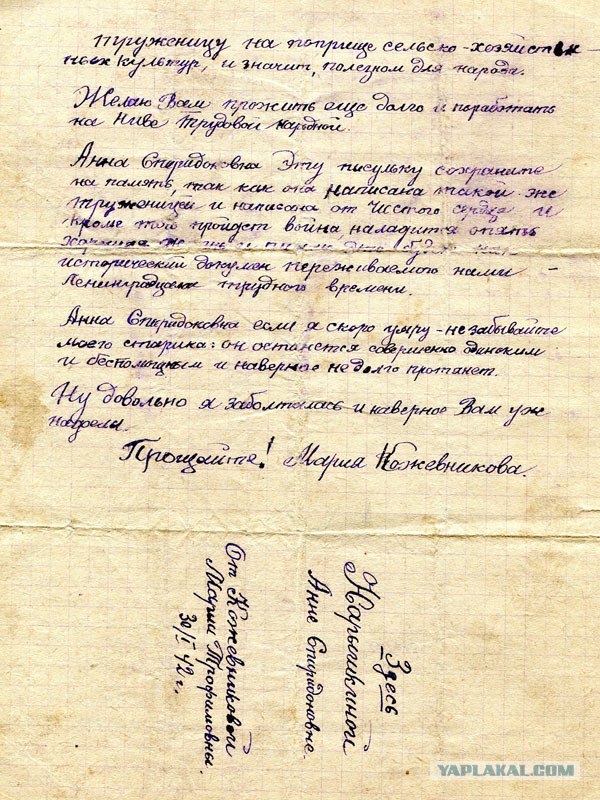 труженицу на поприще сельско-хозяйствен-
ных культур, и значит, полезном для народа.
Желаю Вам прожить еще долго и поработать
на Ниве трудовой народной.
Анна Спиридоновна Эту писульку сохраните
на память, так как она написана такой же
труженицей и написана от Чистого сердца и
кроме того пройдет война наладится опять
исторический документ переживаемого нами -
Ленинградцами трудного времени.
Анна Спиридоновна если я скоро умру - не забывайте
моего старика: он останется совершенно одиноким
и беспомощным и наверное не долго протянет.
Ну довольно я заболталась и наверное Вам уж
надоела.
Прощайте! Мария Кожевникова.
Здесь
Нарышкиной
Анне Спиридоновне.
От Кожевниковой
Марии Трофимовны.
30/I 42 г.
YAPLAKAL.COM